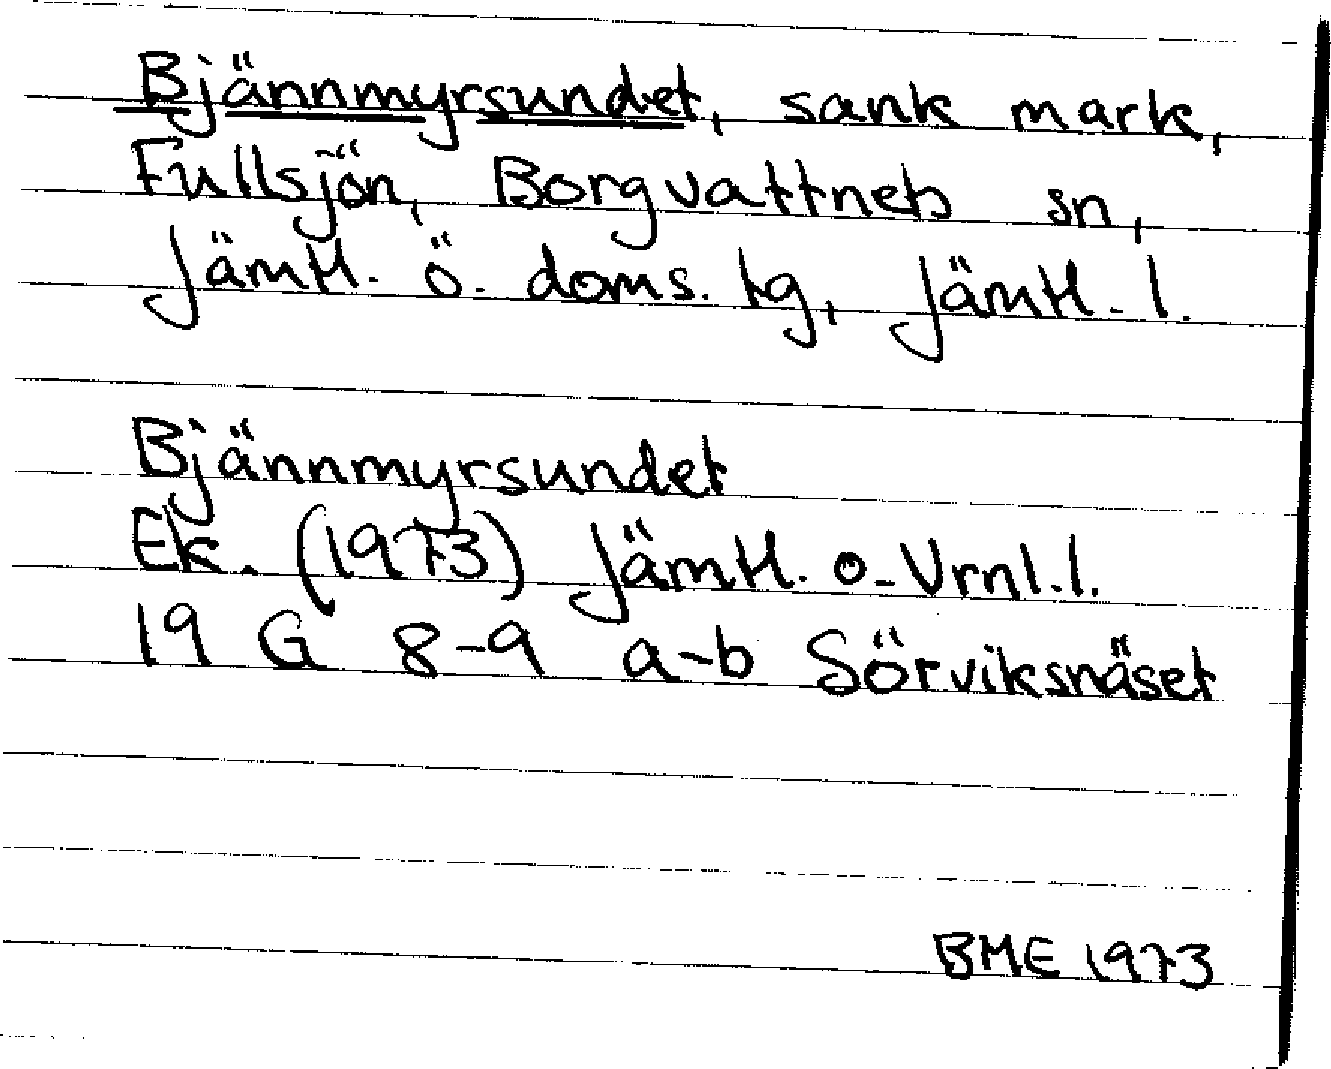 Bjännmyrsundet, sank mark,
Fullsjön, Borgvattnets sn,
Jämtl. ö. doms. tg, Jämtl. l.
Bjännmyrsundet
Ek. (1973) Jämtl. o. Vrnl. l.
19 G 8-9 a-b Sörviksnäset
BME 1973